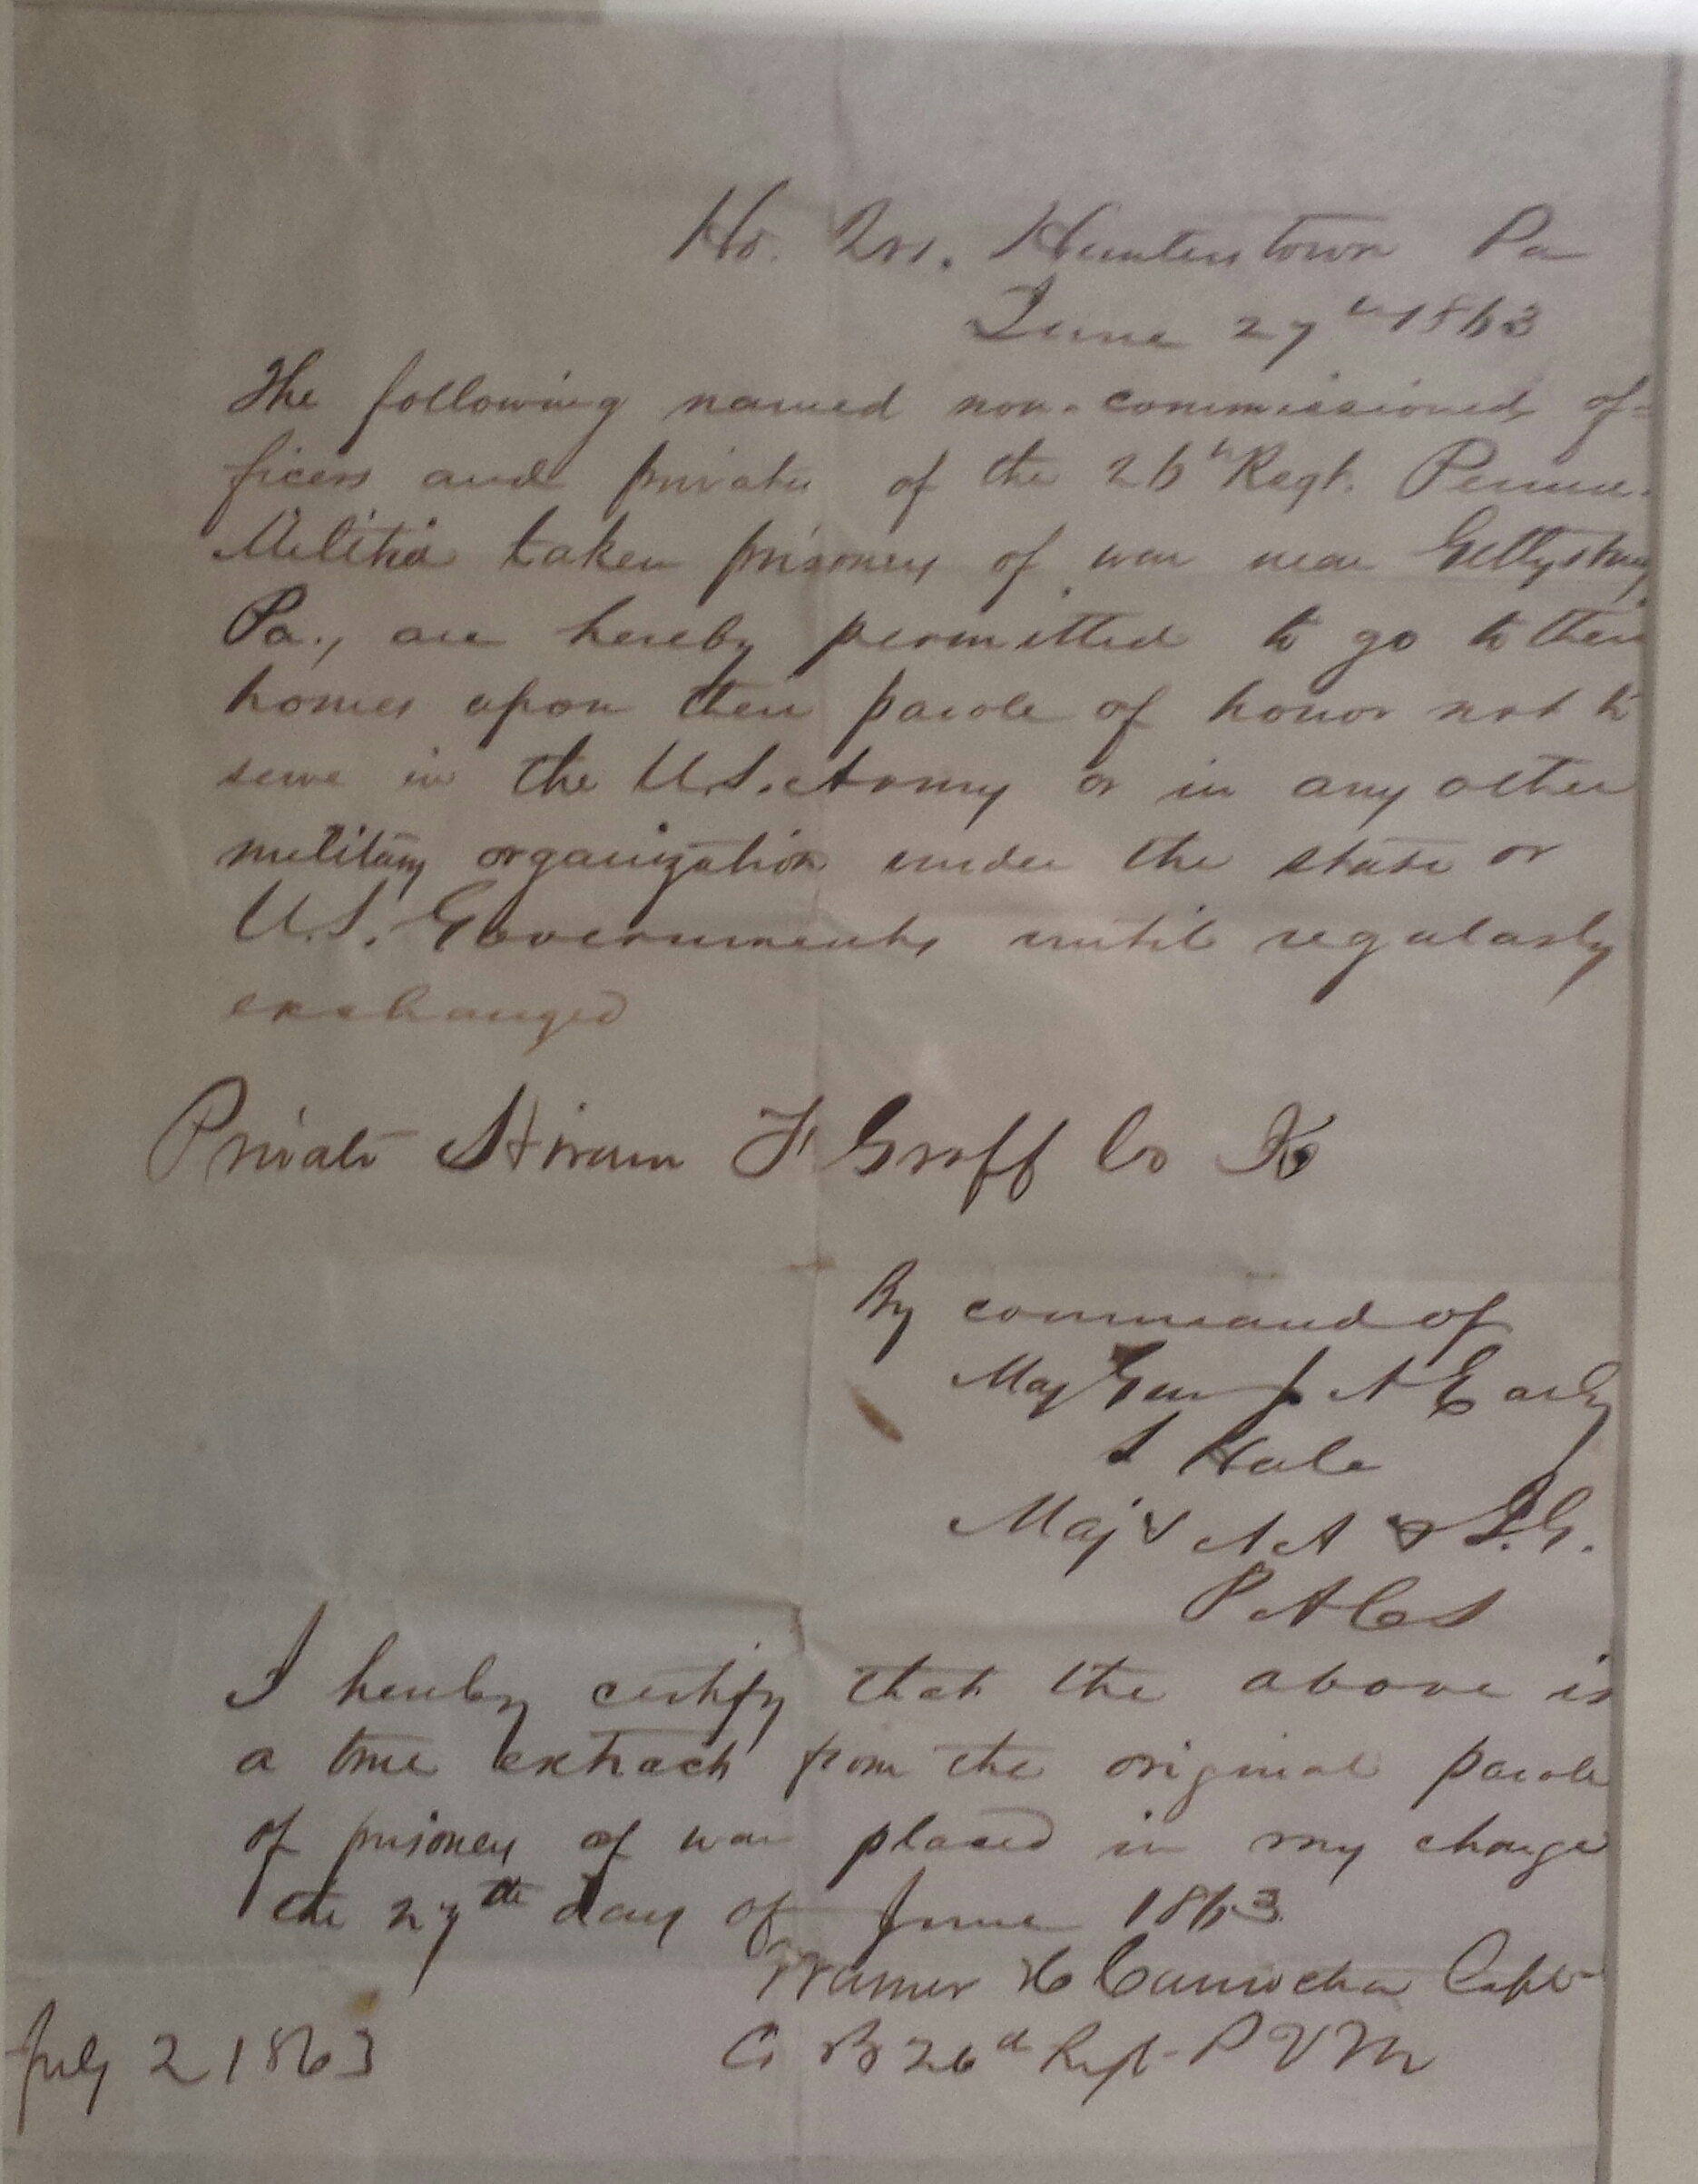 Hd. Qrs. Hunterstown Pa
June 27th 1863
The following named non-commissioned of=
ficers and privates of the 26th Regt. Penna.
Militia taken prisoners of war near Gettysburg
Pa., are hereby permitted to go to their
homes upon their parole of honor not to
serve in the U.S. Army or in any other
military organization under the state or
U.S. Governments until regularly
exchanged
Private Hiram F Groff Co K
By command of
Maj Gen J A Early
S Hale
Maj & A A & I.G.
P A C S
I hereby certify that the above is
a true extract from the original parole
of prisoners of war placed in my charge
the 27th day of June 1863
Warner H Carnochan Capt
Co B 26th Regt P V M
July 2 1863